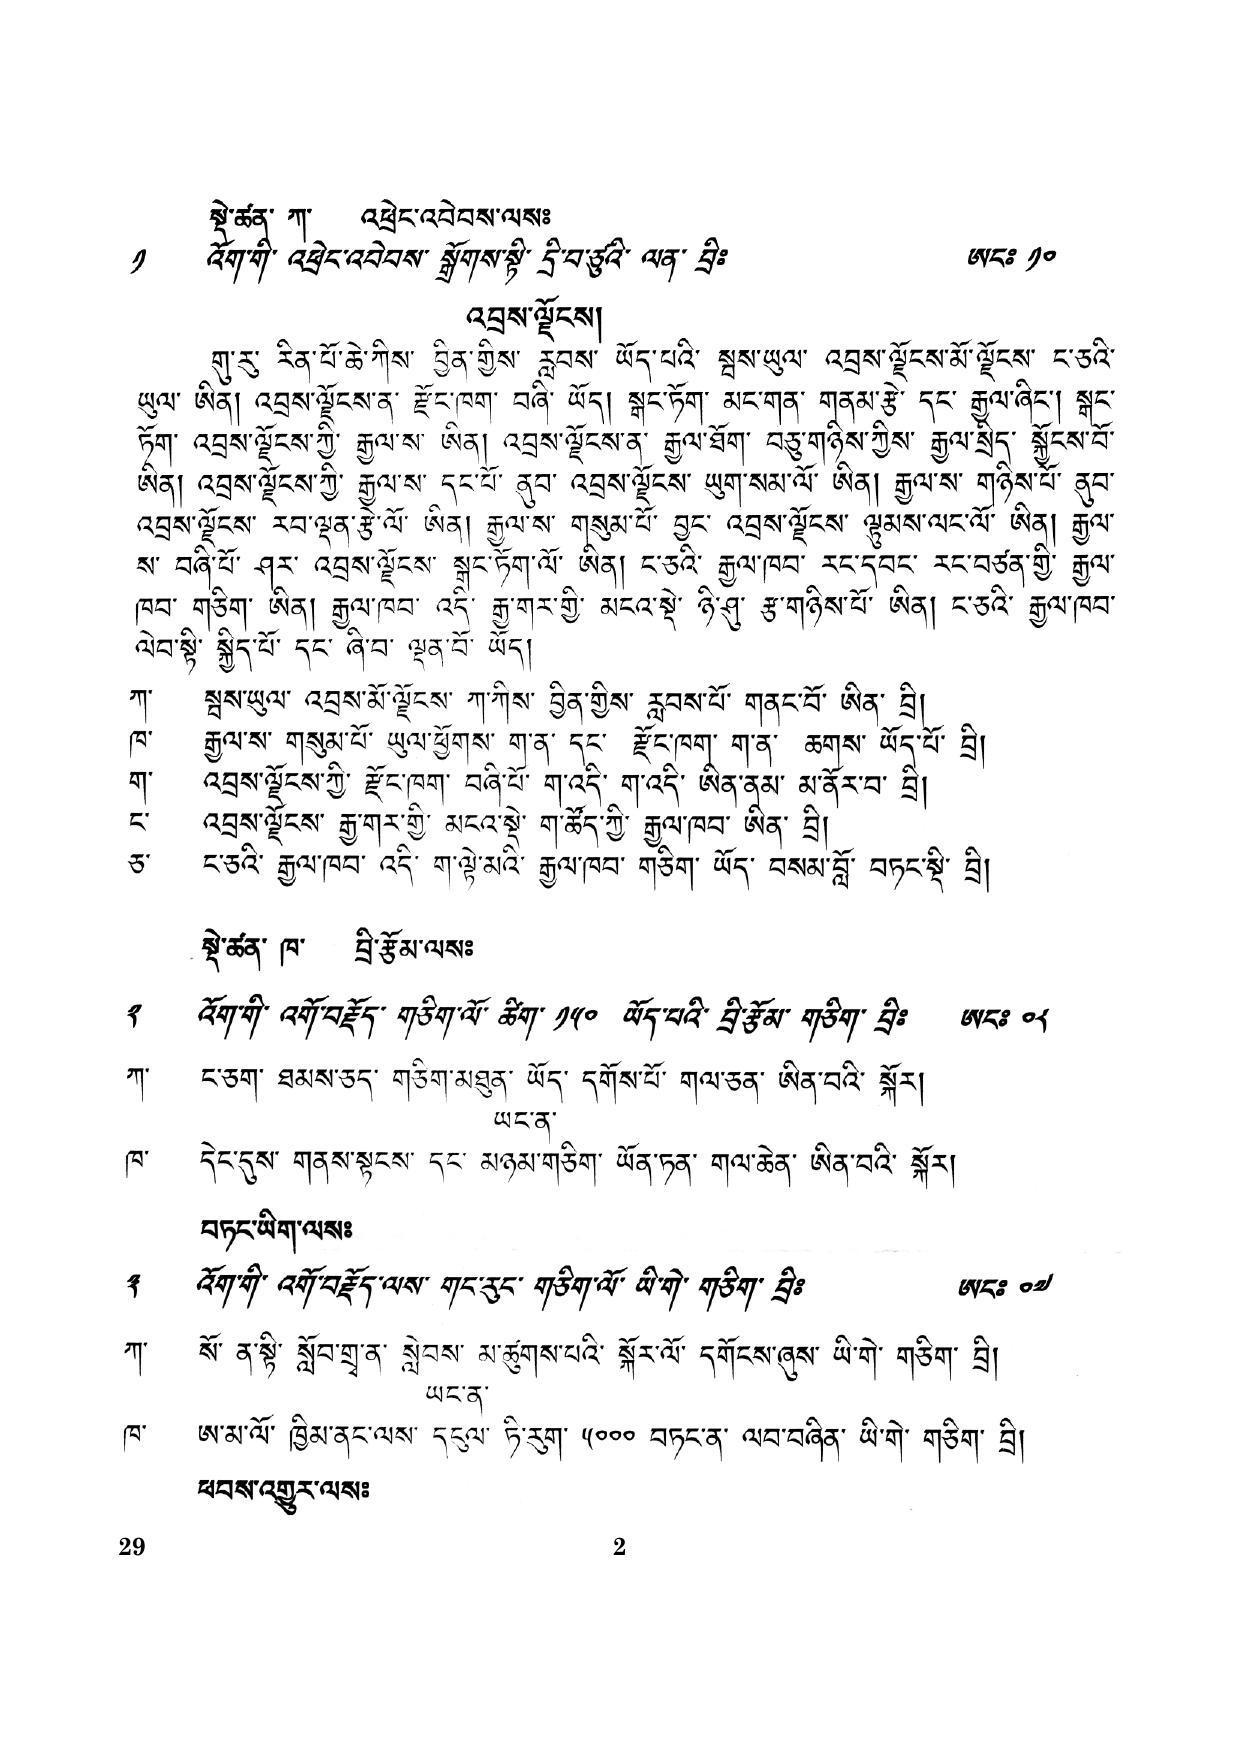 སྡེ་ཚན་ ཀ་ འཕྲེང་འབེབས་ལས༔
༡ འོག་གི་ འཕྲེང་འབེབས་ སྒྲོགས་སྟི་ དྲི་བ་ཙུའི་ ལན་ བྲི༔ ཨང༔ ༡༠
འབྲས་ལྗོངས།
གུ་རུ་ རིན་པོ་ཆེ་ཀིས་ བྱིན་གྱིས་ རླབས་ ཡོད་པའི་ སྦས་ཡུལ་ འབྲས་ལྗོངས་མོ་ལྗོངས་ ང་ཅའི་
ཡུལ་ ཨིན། འབྲས་ལྗོངས་ན་ རྫོང་ཁག་ བཞི་ ཡོད། སྒང་ཏོག་ མང་གན་ གནམ་རྩེ་ དང་ རྒྱལ་ཞིང་། སྒང་
ཏོག་ འབྲས་ལྗོངས་ཀྱི་ རྒྱལ་ས་ ཨིན། འབྲས་ལྗོངས་ན་ རྒྱལ་ཐོག་ བཅུ་གཉིས་ཀྱིས་ རྒྱལ་སྲིད་ སྐྱོངས་བོ་
ཨིན། འབྲས་ལྗོངས་ཀྱི་ རྒྱལ་ས་ དང་པོ་ ནུབ་ འབྲས་ལྗོངས་ ཡུག་སམ་ལོ་ ཨིན། རྒྱལ་ས་ གཉིས་པོ་ ནུབ་
འབྲས་ལྗོངས་ རབ་ལྡན་རྩེ་ལོ་ ཨིན། རྒྱལ་ས་ གསུམ་པོ་ བྱང་ འབྲས་ལྗོངས་ ལྟུམས་ལང་ལོ་ ཨིན། རྒྱལ་
ས་ བཞི་པོ་ ཤར་ འབྲས་ལྗོངས་ སྒང་ཏོག་ལོ་ ཨིན། ང་ཅའི་ རྒྱལ་ཁབ་ རང་དབང་ རང་བཙན་གྱི་ རྒྱལ་
ཁབ་ གཅིག་ ཨིན། རྒྱལ་ཁབ་ འདི་ རྒྱ་གར་གྱི་ མངའ་སྡེ་ ཉི་ཤུ་ རྩ་གཉིས་པོ་ ཨིན། ང་ཅའི་ རྒྱལ་ཁབ་
ལེབ་སྟི་ སྐྱིད་པོ་ དང་ ཞི་བ་ ལྡན་བོ་ ཡོད།
ཀ་ སྦས་ཡུལ་ འབྲས་མོ་ལྗོངས་ ཀ་ཀིས་ བྱིན་གྱིས་ རླབས་པོ་ གནང་བོ་ ཨིན་ བྲི།
ཁ་ རྒྱལ་ས་ གསུམ་པོ་ ཡུལ་ཕྱོགས་ ག་ན་ དང་ རྫོང་ཁག་ ག་ན་ ཆགས་ ཡོད་པོ་ བྲི།
ག་ འབྲས་ལྗོངས་ཀྱི་ རྫོང་ཁག་ བཞི་པོ་ ག་འདི་ ག་འདི་ ཨིན་ནམ་ མ་ནོར་བ་ བྲི།
ང་ འབྲས་ལྗོངས་ རྒྱ་གར་གྱི་ མངའ་སྡེ་ ག་ཚོད་ཀྱི་ རྒྱལ་ཁབ་ ཨིན་ བྲི།
ཅ་ ང་ཅའི་ རྒྱལ་ཁབ་ འདི་ ག་ལྟེ་མའི་ རྒྱལ་ཁབ་ གཅིག་ ཡོད་ བསམ་བློ་ བཏང་སྡི་ བྲི།
སྡེ་ཚན་ ཁ་ བྲི་རྩོམ་ལས༔
༢ འོག་གི་ འགོ་བརྗོད་ གཅིག་ལོ་ ཚིག་ ༡༥༠ ཡོད་པའི་ བྲི་རྩོམ་ གཅིག་ བྲི༔ ཨང༔ ༠༨
ཀ་ ང་ཅག་ ཐམས་ཅད་ གཅིག་མཐུན་ ཡོད་ དགོས་པོ་ གལ་ཅན་ ཨིན་བའི་ སྐོར།
ཡང་ན་
ཁ་ དེང་དུས་ གནས་སྟངས་ དང་ མཉམ་གཅིག་ ཡོན་ཏན་ གལ་ཆེན་ ཨིན་བའི་ སྐོར།
བཏང་ཡིག་ལས༔
༣ འོག་གི་ འགོ་བརྗོད་ལས་ གང་རུང་ གཅིག་ལོ་ ཡི་གེ་ གཅིག་ བྲི༔ ཨང༔ ༠༧
ཀ་ སོ་ ན་སྟི་ སློབ་གྲྭ་ན་ སླེབས་ མ་ཚུགས་པའི་ སྐོར་ལོ་ དགོངས་ཞུས་ ཡི་གེ་ གཅིག་ བྲི།
ཡང་ན་
ཁ་ ཨ་མ་ལོ་ ཁྱིམ་ནང་ལས་ དངུལ་ ཏི་རུག་ ༥༠༠༠ བཏང་ན་ ལབ་བཞིན་ ཡི་གེ་ གཅིག་ བྲི།
ཕབས་འགྱུར་ལས༔
29 2